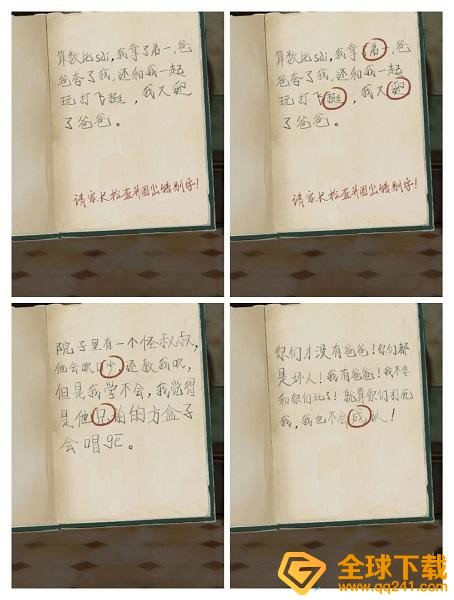 算数比sai,我拿了弟一,爸
爸夸了我,还和我一起
玩打飞挺,我又
了爸爸。
请家长检查并圈出错别字!
算数比sai,我拿了弟一,爸
爸夸了我,还和我一起
玩打飞挺,我又
了爸爸。
请家长检查并圈出错别字!
院子里有一个怪叔叔,
他会吹口少,还教我吹,
但是我学不会,我觉得
是他兄前的方盒子
会唱gē。
你们才没有爸爸!你们都
是坏人!我有爸爸!我不要
和你们玩了!就算你们打死
我,我也不会成认!
全球下载
www.qq241.com